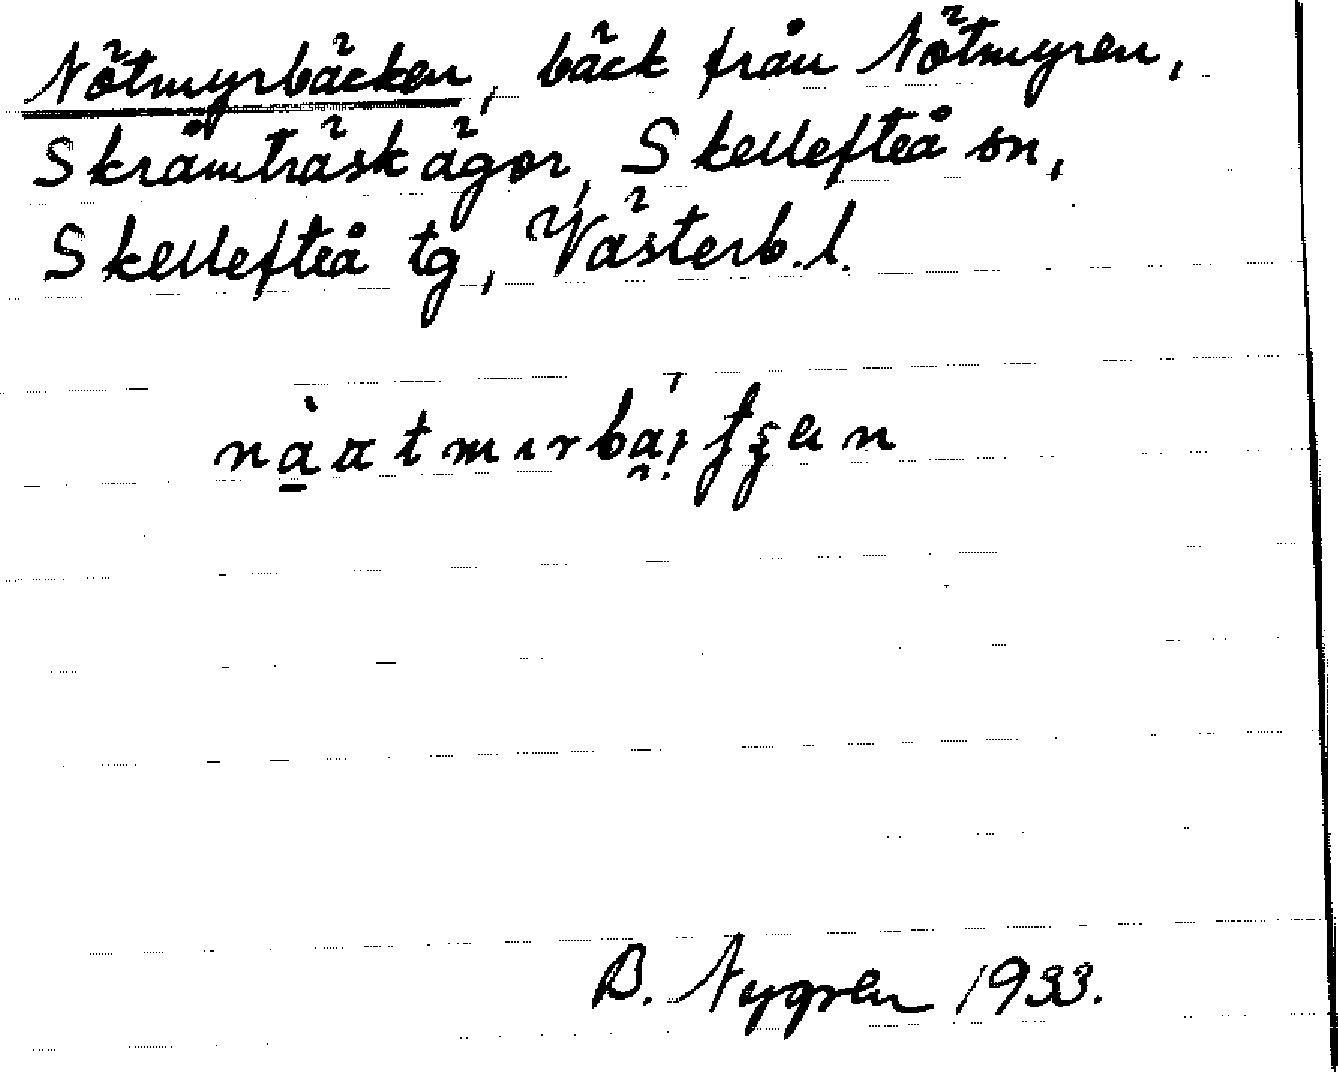 Nötmyrbäcken, bäck från Nötmyren,
Skråmträsk ägor, Skellefteå sn,
Skellefteå tg, Västerb.l.
B. Nygren 1933.